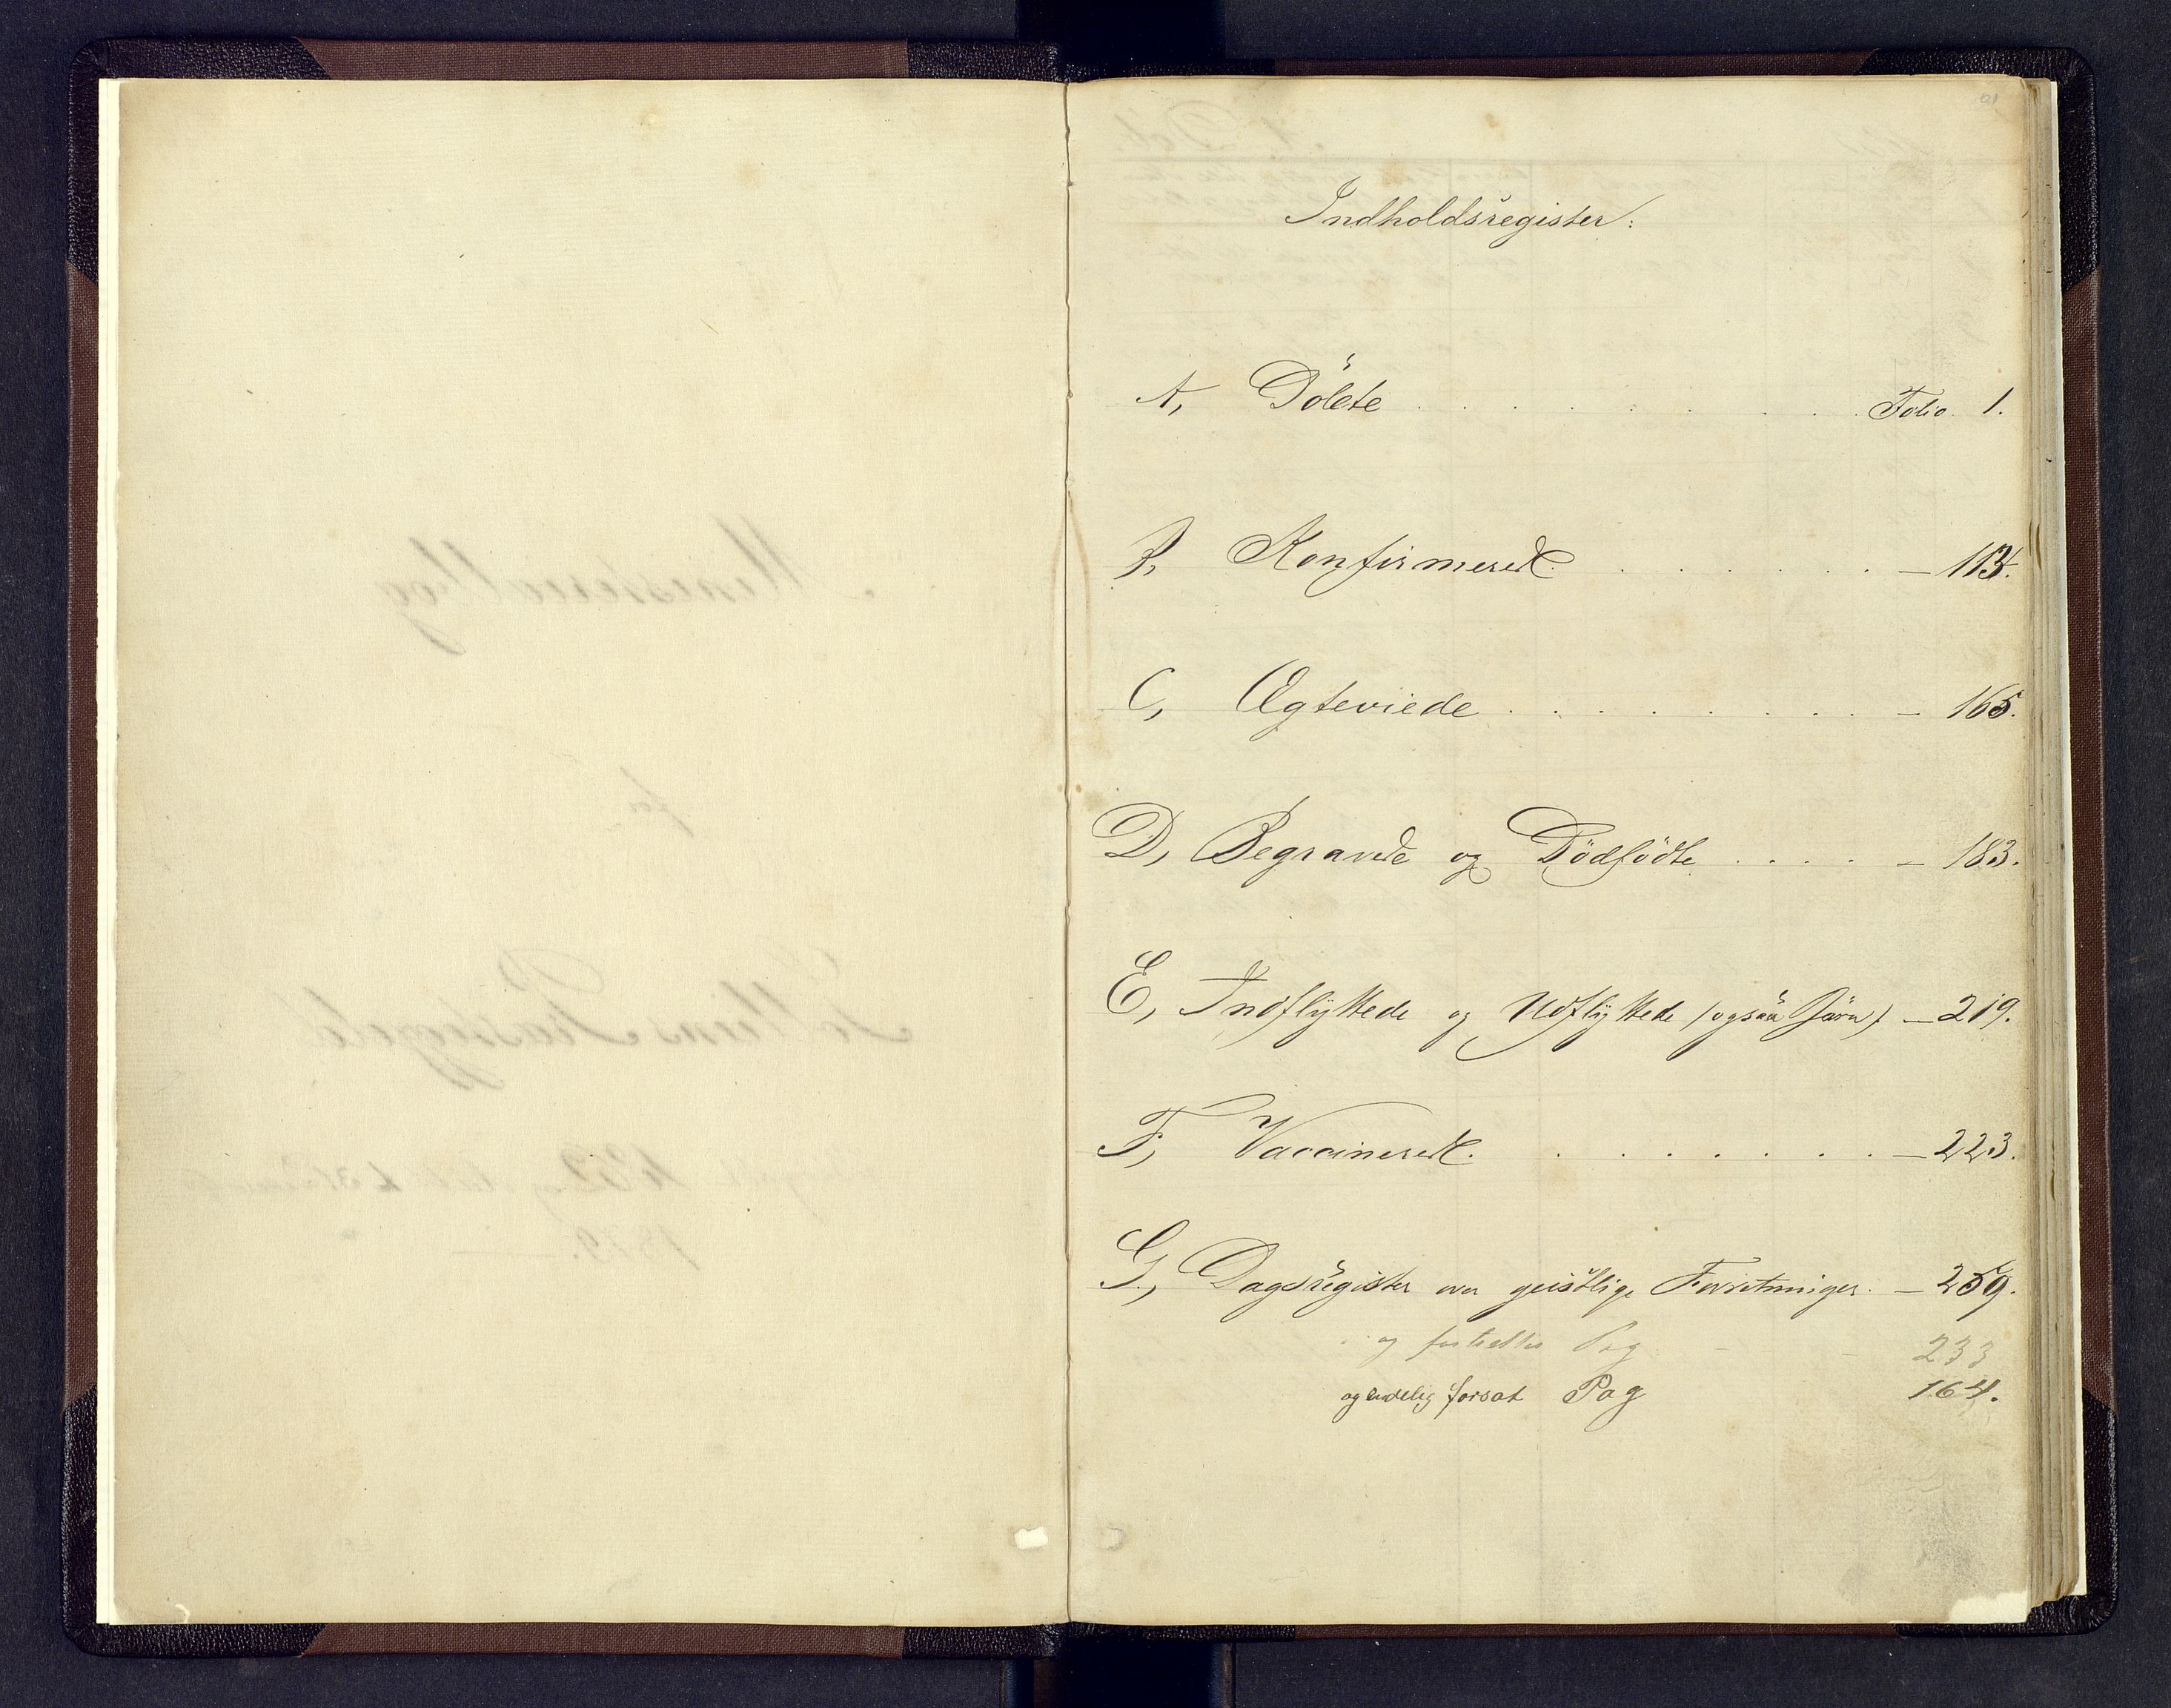 Indholdsregister:
A, Döbte . . . . . . . . Folio 1.
B, Konfirmerede . . . . . . — 113.
C, Ægteviede . . . . . . . — 165.
D, Begravede og Dödfödte . . . . — 183.
E, Indflyttede og Udflyttede (ogsaa Jörn) — 219.
F, Vaccinerede . . . . . . . — 223.
G, Dagsregister over geistlige Forretninger. — 259.
og fortsættes Pag — — 233
og endelig forsat Pag 164.
Ministerialbog
for
Præstegjeld
1879.